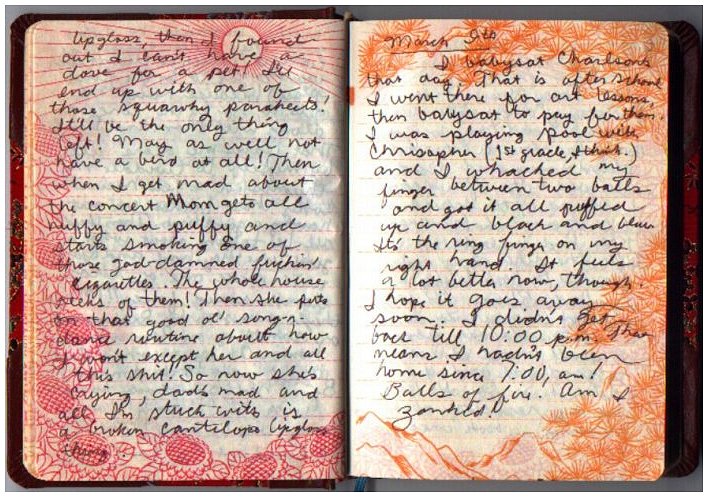 lipgloss, then I found
out I can't have a
dove for a pet. I'll
end up with one of
those squawky parakeets!
It'll be the only thing
left! May as well not
have a bird at all! Then
when I get mad about
the concert Mom gets all
huffy and puffy and
starts smoking one of
those god-damned fuckin'
cigarettes. The whole house
reeks of them! Then she puts
on that good ol' song-n-
dance routine about how
I won't except her and all
this shit. So now she's
crying, dad's mad and
all I'm stuck with is
a broken cantelope lipgloss
thing.
March 9th
I babysat Charlson's
that day. That is after school
I went there for art lessons,
then babysat to pay for them.
I was playing pool with
Chrisopher (1st grade, I think.)
and I whacked my
finger between two balls
and got it all puffed
up and black and blue.
It's the ring finger on my
right hand. It feels
a lot better now, though.
I hope it goes away
soon. I didn't get
back till 10:00 p.m. That
means I hadn't been
home since 7:00, am!
Balls of fire. Am I
zonked!